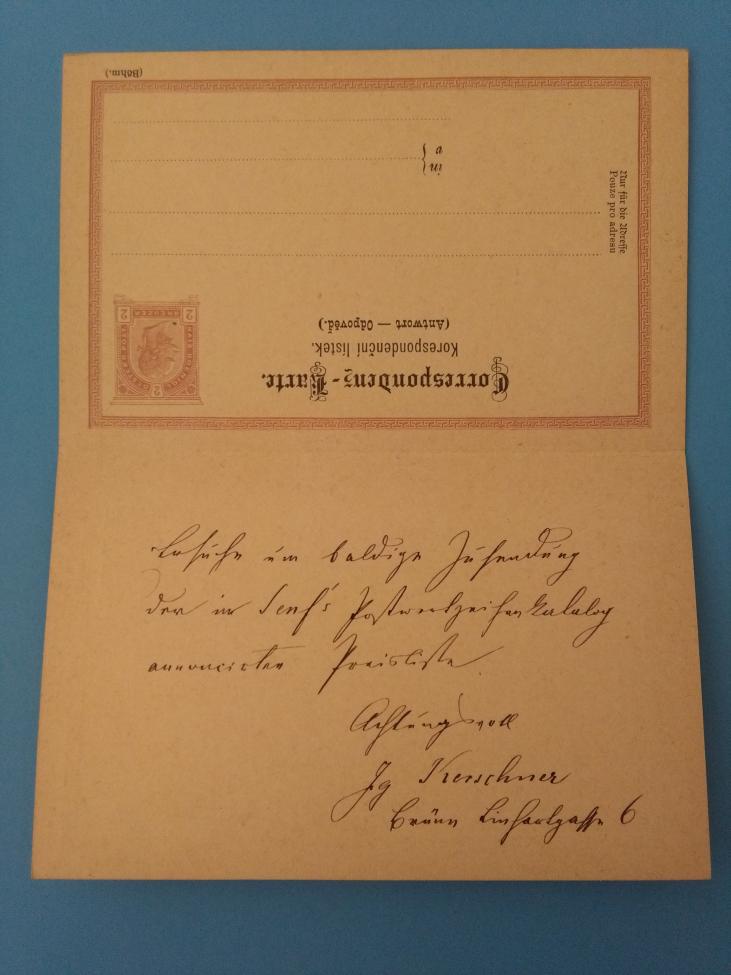 (Böhm.)
Correspondenz-Karte.
Korespondenční lístek.
(Antwort — Odpověď.)
2 2 2
KREUZER
in
v
Nur für die Adresse
Pouze pro adresu
Ersuche um baldige Zusendung
der in Senf's Postwerthzeichenkatalog
annoncirten Preisliste
Achtungsvoll
Jg Kerschner
Brünn Linhartgasse 6